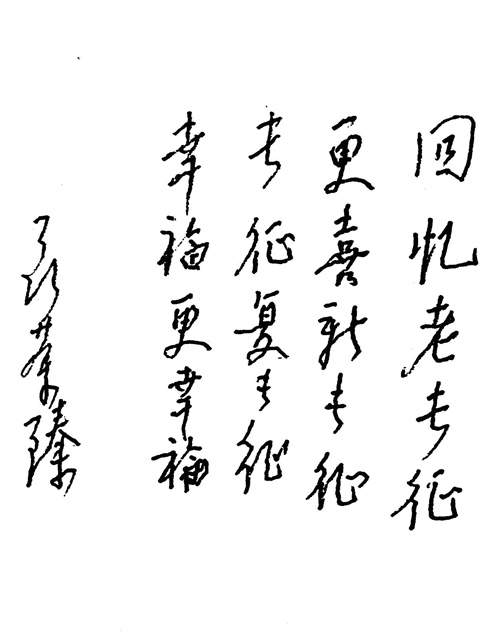 回忆老长征
更喜新长征
长征复长征
幸福更幸福
聂荣臻